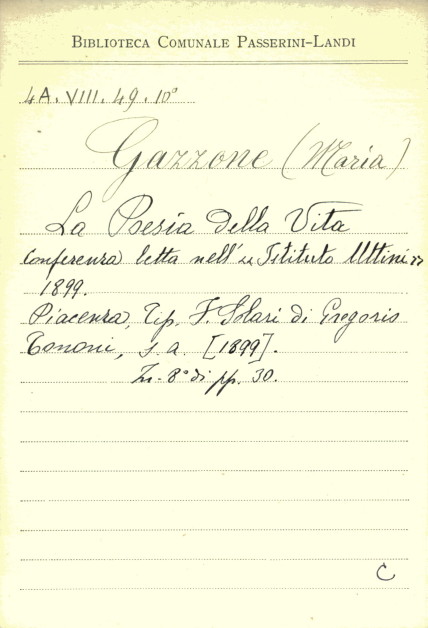 BIBLIOTECA COMUNALE PASSERINI-LANDI
4A. VIII. 49. 10°
Gazzone (Maria)
La Poesia della Vita
Conferenza letta nell' Istituto Uttini
1899.
Piacenza, Tip. F. Solari di Gregorio
Tononi, s. a. [1899].
In-8° di pp. 30.
C